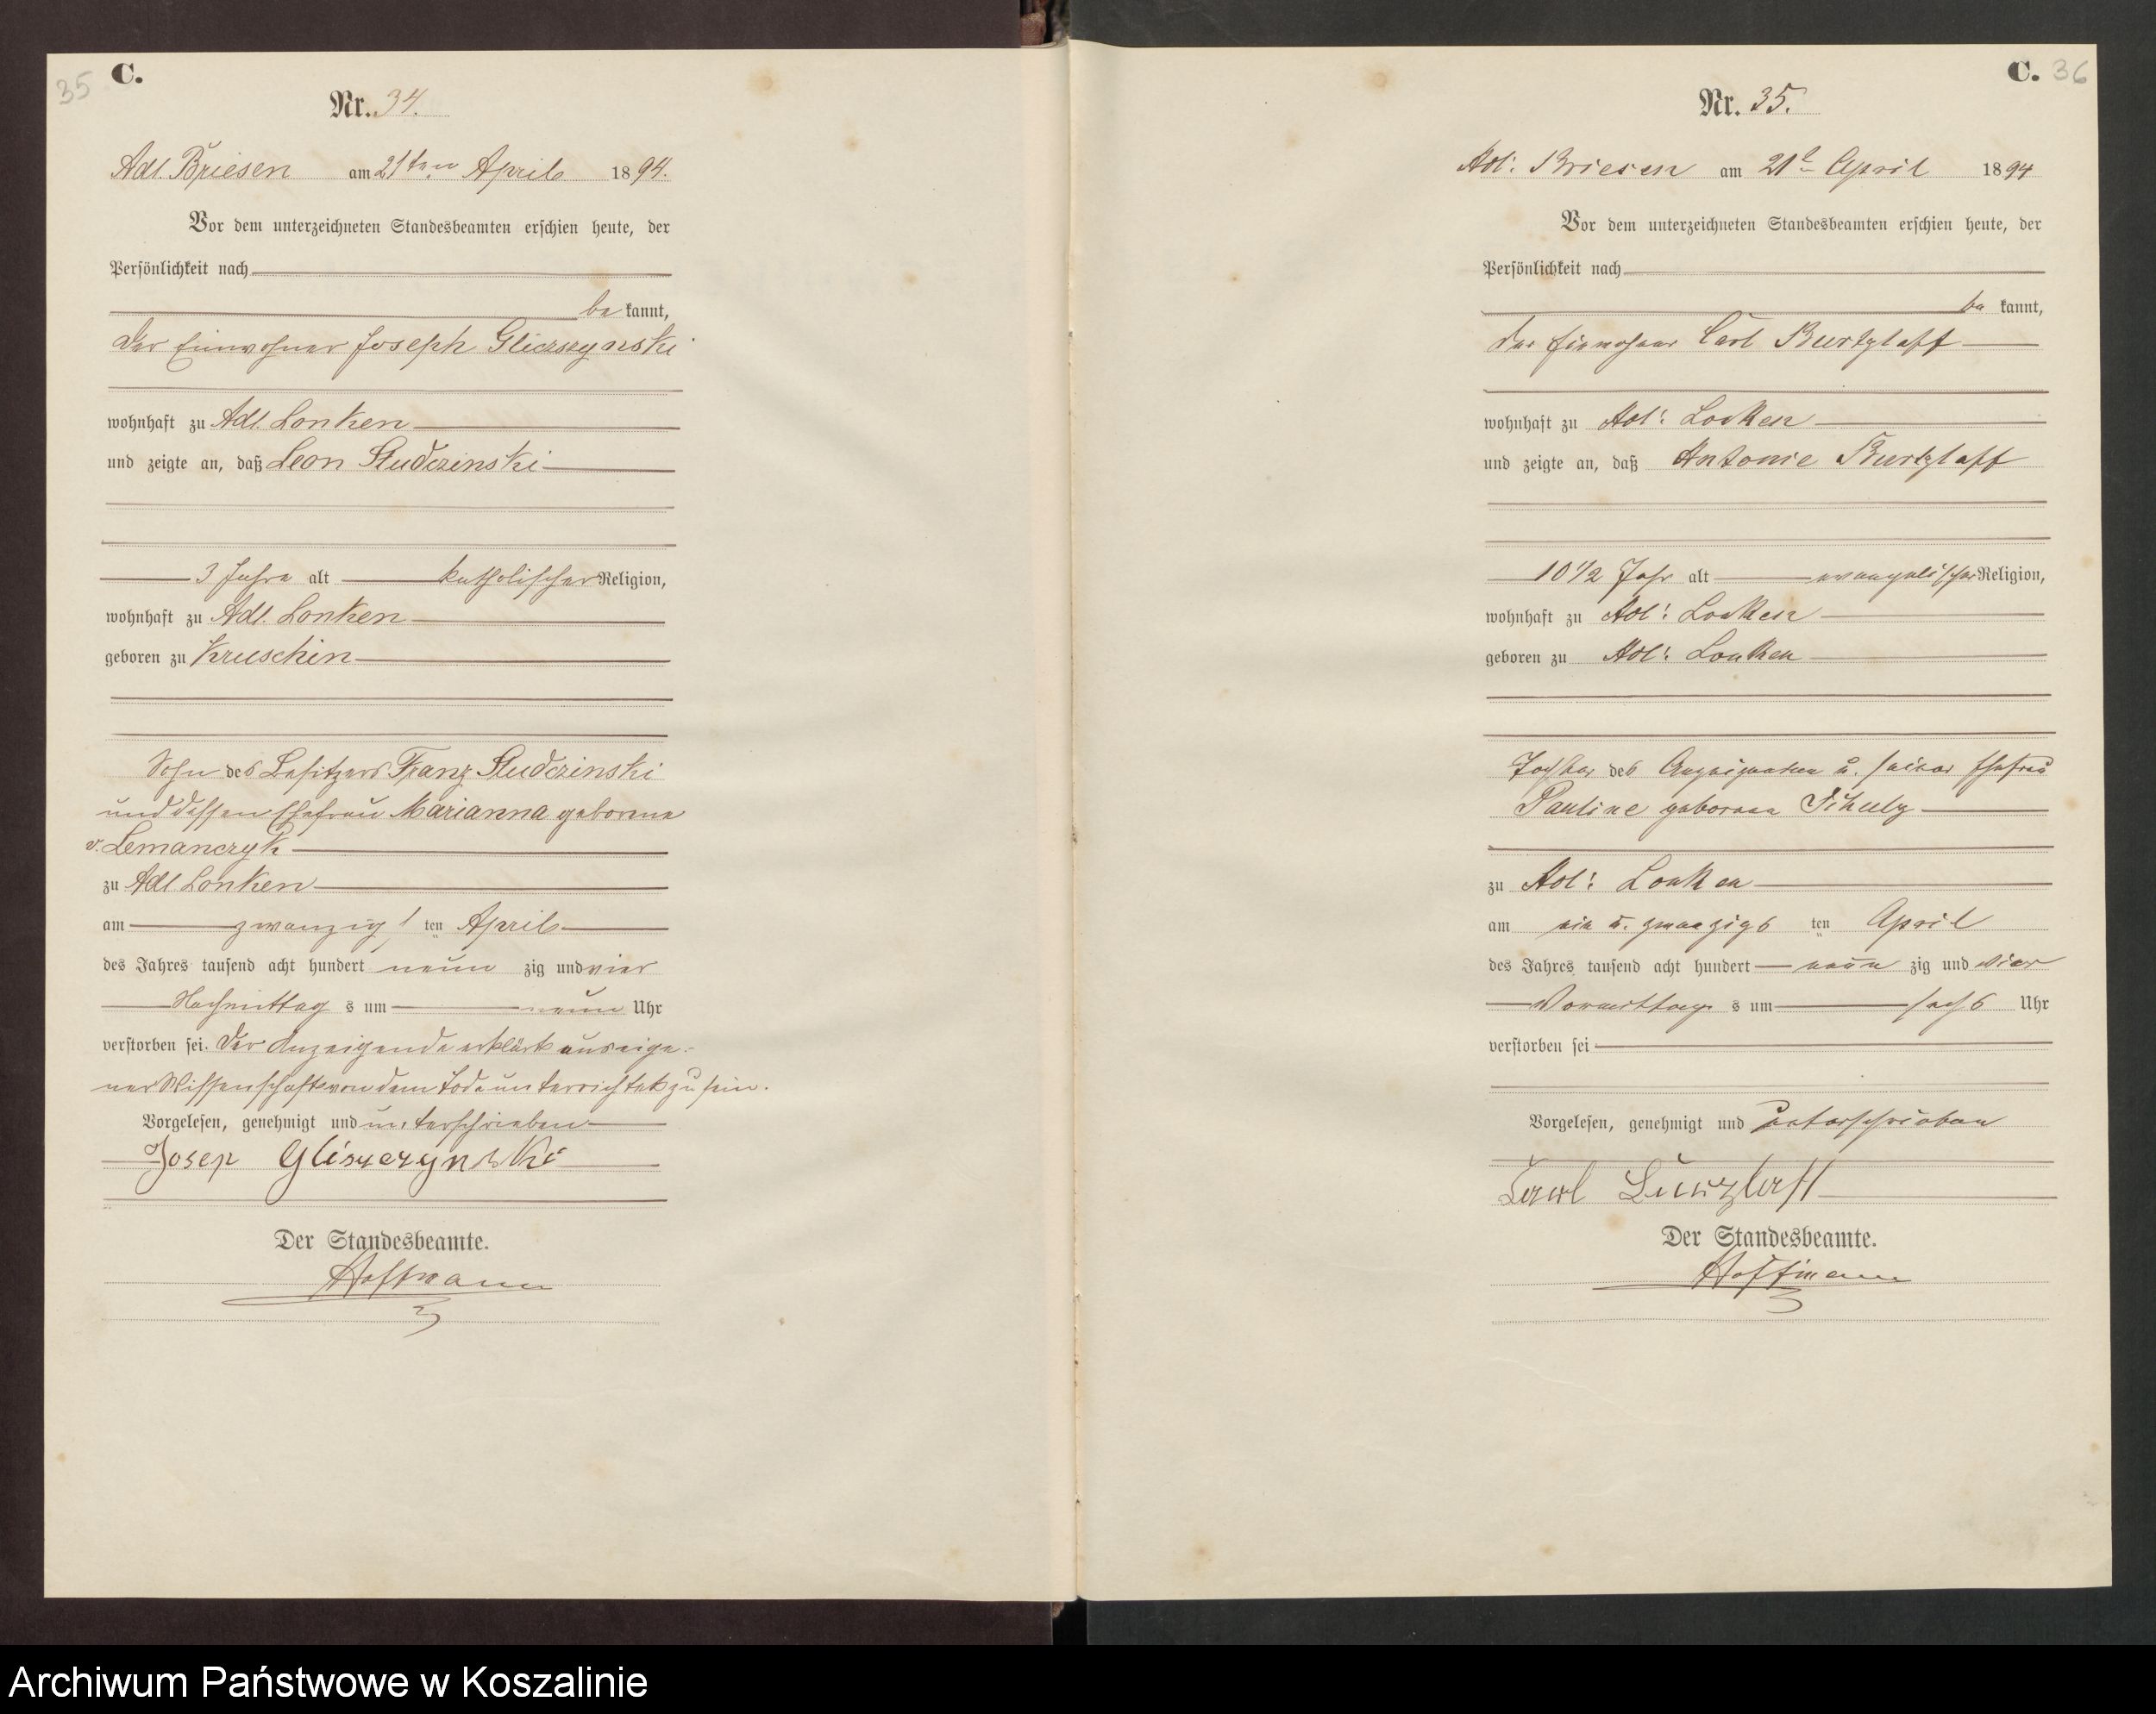 35
C.
Nr. 34.
Adl. Briesen am 21ten April 1894.
Vor dem unterzeichneten Standesbeamten erschien heute, der
Persönlichkeit nach
be kannt,
der Einwohner Joseph Gliczszynski
wohnhaft zu Adl. Lonken
und zeigte an, daß Leon Studzinski
3 Jahre alt katholischer Religion,
wohnhaft zu Adl. Lonken
geboren zu Kruschin
Sohn des Besitzers Franz Studzinski
und dessen Ehefrau Marianna geborene
v. Lemanczyk
zu Adl Lonken
am zwanzigsten April
des Jahres tausend acht hundert neun zig und vier
Nachmittag s um neun Uhr
verstorben sei. Der Anzeigende erklärt aus eige-
ner Wissenschaft von dem Tode unterrichtet zu sein.
Vorgelesen, genehmigt und unterschrieben
Josep Gliszczynski
Der Standesbeamte.
Hoffmann
C. 36
Nr. 35.
Adl: Briesen am 21t April 1894
Vor dem unterzeichneten Standesbeamten erschien heute, der
Persönlichkeit nach
be kannt,
der Einwohner Carl Burtzlaff
wohnhaft zu Adl: Lonken
und zeigte an, daß Antonie Burtzlaff
10 1/2 Jahr alt evangelischer Religion,
wohnhaft zu Adl: Lonken
geboren zu Adl: Lonken
Tochter des Anzeigenden u. seiner Ehefrau
Pauline geborene Schulz
zu Adl: Lonken
am ein u. zwanzigs ten April
des Jahres tausend acht hundert neun zig und vier
Vormittag s um sechs Uhr
verstorben sei
Vorgelesen, genehmigt und unterschrieben
Der Standesbeamte.
Hoffmann
Archiwum Państwowe w Koszalinie